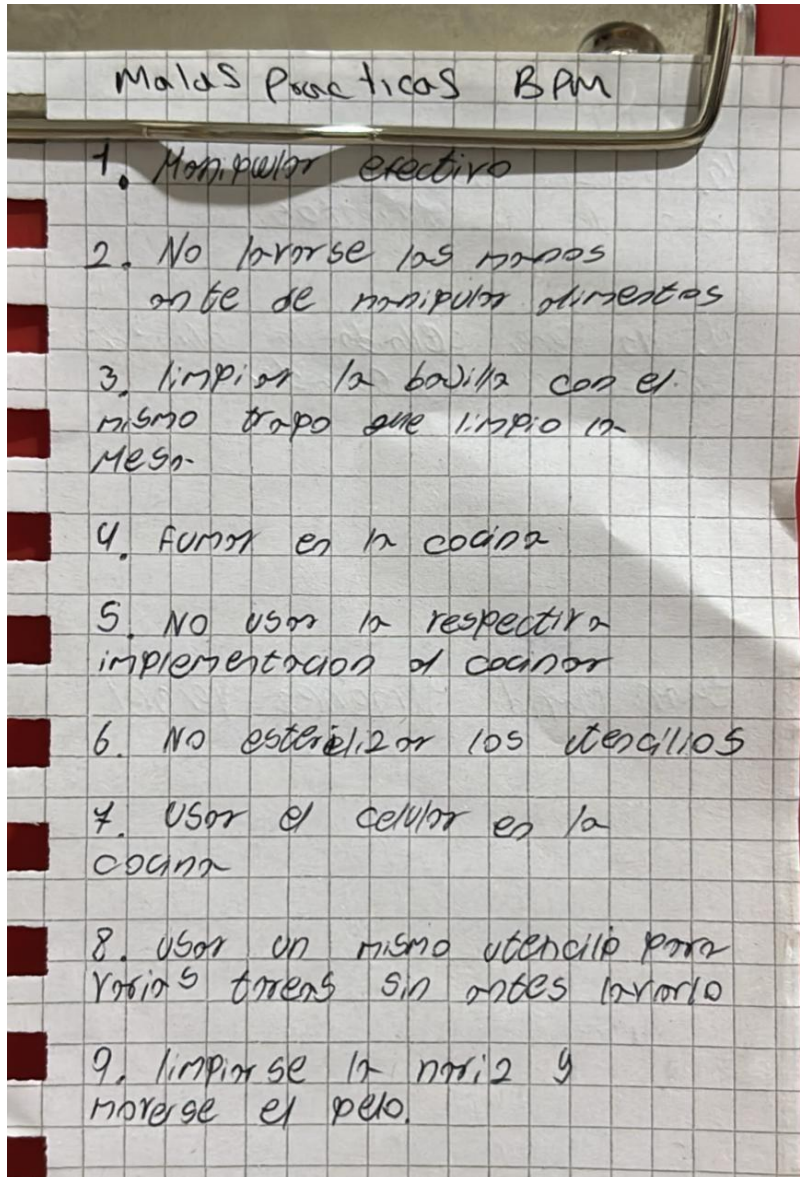 Malas Practicas BPM
1. Manipular efectivo
2. No lavarse las manos
ante de manipular alimentos
3. limpiar la bajilla con el
mismo trapo que limpio la
Mesa
4. Fumar en la cocina
5. No usar la respectiva
implementacion al cocinar
6. No esterilizar los utencilios
7. Usar el celular en la
cocina
8. Usar un mismo utencilio para
varias tareas sin antes lavarlo
9. limpiarse la nariz y
moverse el pelo.